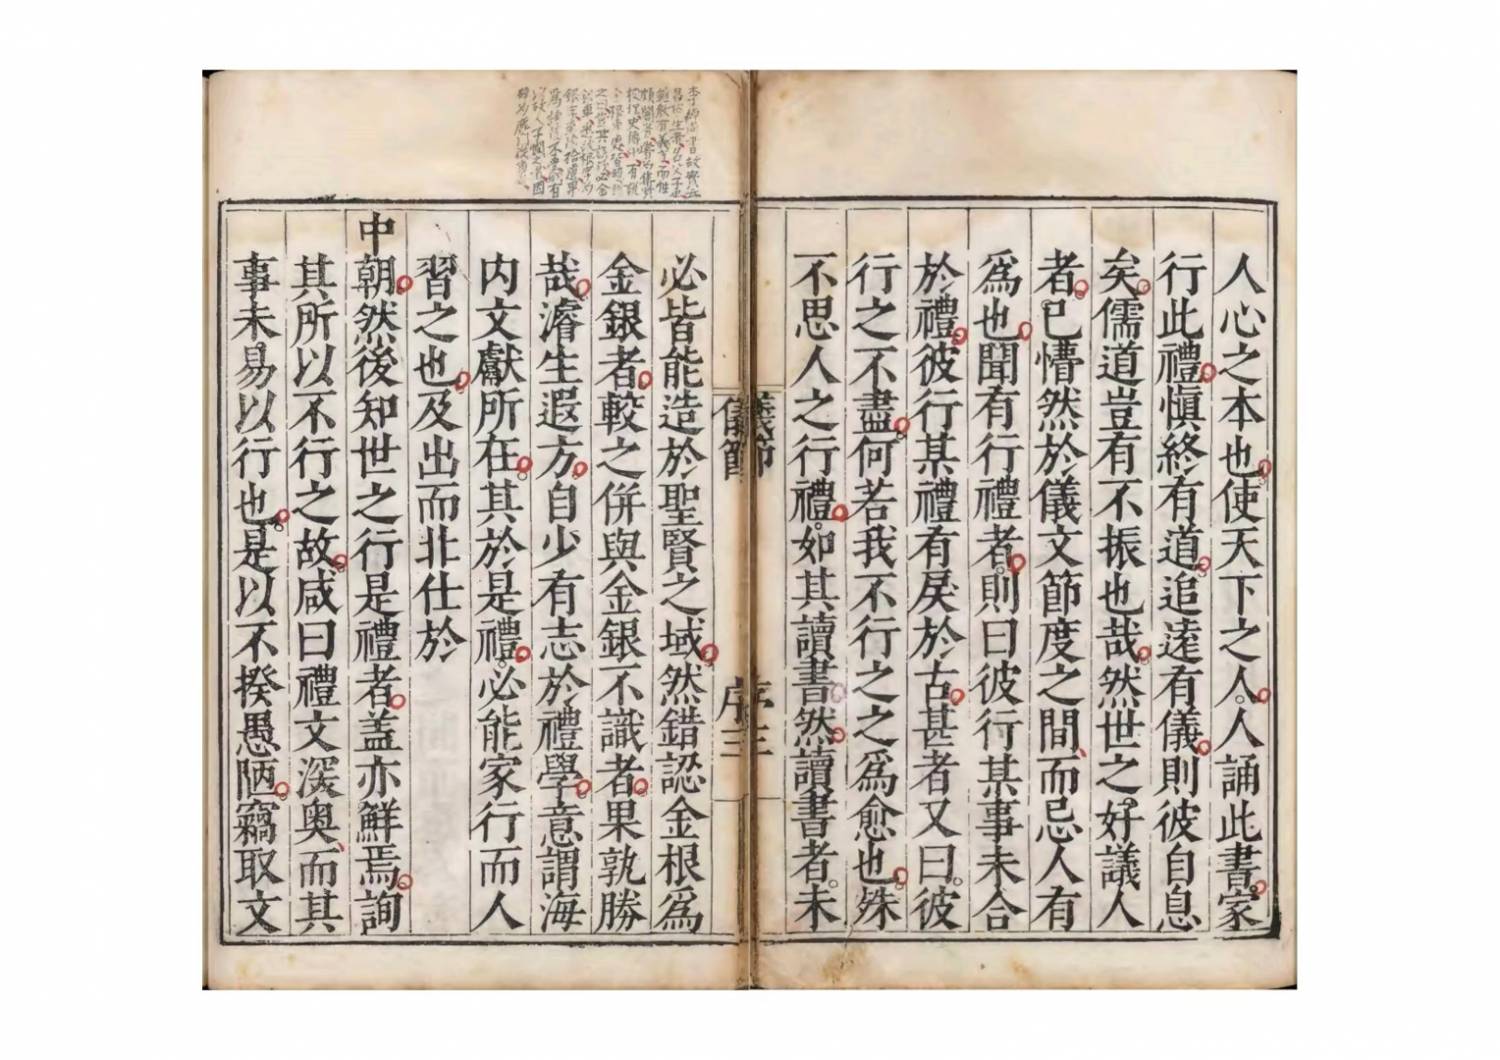 人心之本也使天下之人人誦此書家
行此禮愼終有道追遠有儀則彼自息
矣儒道豈有不振也哉然世之好議人
者已懵然於儀文節度之間而忌人有
爲也聞有行禮者則曰彼行某事未合
於禮彼行某禮有戾於古甚者又曰彼
行之不盡何若我不行之之爲愈也殊
不思人之行禮如其讀書然讀書者未
儀節
序三
必皆能造於聖賢之域然錯認金根爲
金銀者較之併與金銀不識者果孰勝
哉濬生遐方自少有志於禮學意謂海
内文獻所在其於是禮必能家行而人
習之也及出而北仕於
中朝然後知世之行是禮者蓋亦鮮焉詢
其所以不行之故咸曰禮文深奧而其
事未易以行也是以不揆愚陋竊取文